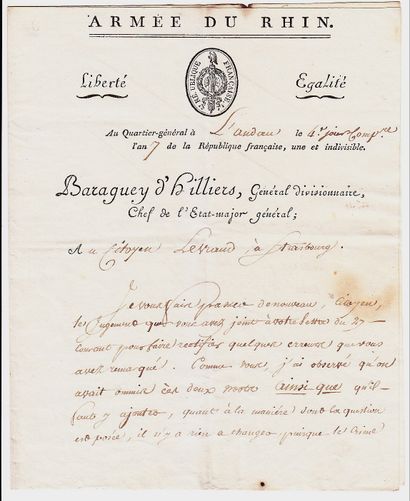 ARMÉE DU RHIN.
Liberté Egalité
RÉPUBLIQUE FRANÇAISE
Au Quartier-général à Landau le 4e jour Compre
l'an 7 de la République française, une et indivisible.
Baraguey d'Hilliers, Général divisionnaire,
Chef de l'Etat-major général;
Au Citoyen Levraud à Strasbourg.
Je vous fais passer de nouveau Citoyen,
les Jugements que vous avez joint à votre lettre du 27
courant pour faire rectifier quelques erreurs que vous
avez remarqué. Comme vous, j'ai observé qu'on
avait ommis ces deux mots ainsi que qu'il
faut y ajouter, quant à la manière dont la question
est posée, il n'y a rien a changer puisque le Crime